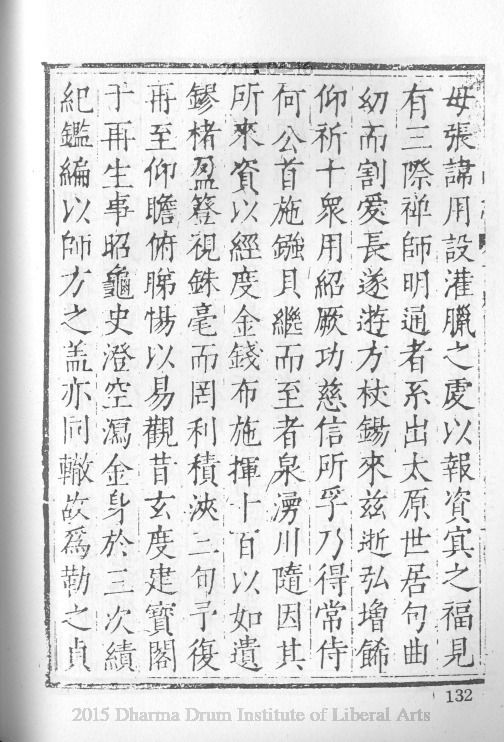 母張諱用設灌臘之處以報資㝠之福見
有三際禅師明通者系出太原世居句曲
幼而割愛長遂遊方杖錫來兹逝弘增餙
仰祈十衆用紹厥功慈信所孚乃得常侍
何公首施鏹貝繼而至者泉湧川隨因其
所來資以經度金錢布施揮十百以如遺
鏐楮盈簪視銖毫而罔利積浹二旬予復
再至仰瞻俯睇惕以易觀昔玄度建寳閣
于再生事昭龜史澄空瀉金身於三次績
紀鑑編以師方之盖亦同轍故爲勒之貞
132
2015 Dharma Drum Institute of Liberal Arts